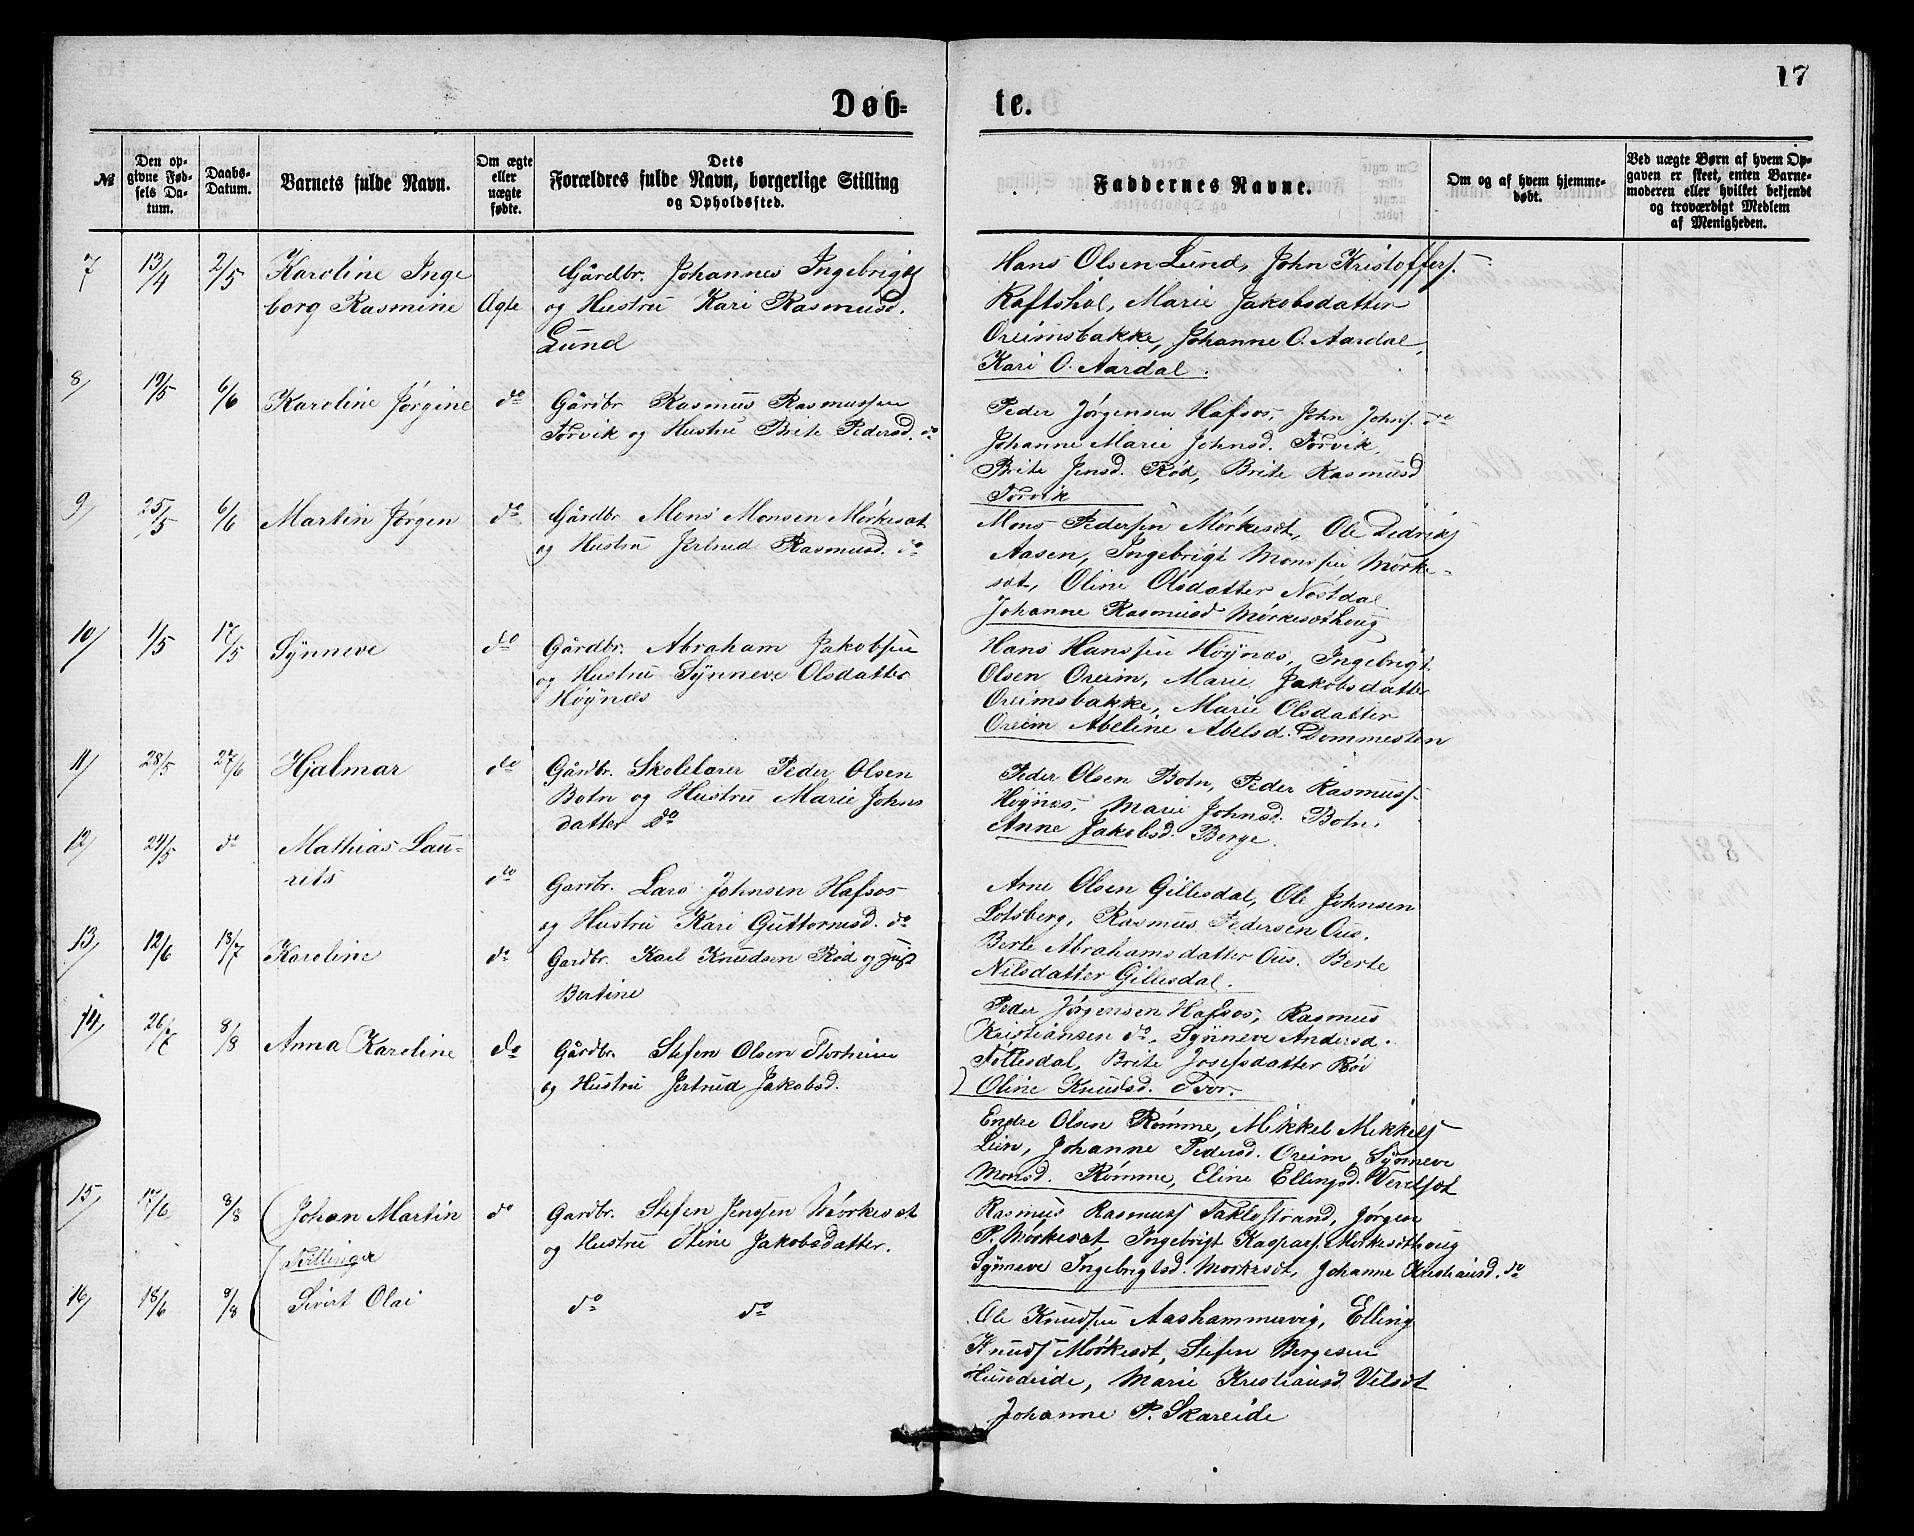 17
Døb-
te.
№
Den op-
givne Fød-
sels Da-
tum.
Daabs-
Datum.
Barnets fulde Navn.
Om ægte
eller
uægte
fødte.
Dets
Forældres fulde Navn, borgerlige Stilling
og Opholdssted.
Faddernes Navne.
Om og af hvem hjemme-
døbt.
Ved uægte Børn af hvem Op-
gaven er skeet, enten Barne-
moderen eller hvilket bekjendt
og troværdigt Medlem
af Menigheden.
7 13/4 2/5 Karoline Inge
borg Rasmine Ægte
Gårdbr. Johannes Ingebrigts
og Hustru Kari Rasmusd.
Lund
Hans Olsen Lund, John Kristoffers.
Raftshol, Marie Jakobsdatter
Oreimsbakke, Johanne O. Aardal,
Kari O. Aardal.
8/ 19/5 6/6 Karoline Jørgine do
Gårdbr Rasmus Rasmussen
Torvik og Hustru Brite Pedersd. do
Peder Jørgensen Hafsos, John Johns. do
Johanne Marie Johnsd. Torvik,
Brite Jensd. Rød, Brite Rasmusd
Torvik
9/ 25/5 6/6 Martin Jørgen do
Gårdbr Mons Monsen Mørkesæt
og Hustru Jertrud Rasmusd. do
Mons Pedersen Mørkesæt, Ole Didriks
Aasen, Ingebrigt Monssen Mørke-
sæt, Oline Olsdatter Nøstdal
Johanne Rasmusd Mørkesæthoug
10/ 1/5 17/5 Synneve do
Gårdbr. Abraham Jakobsen
og Hustru Synneve Olsdatter
Høynæs
Hans Hanssen Høynæs, Ingebrigt
Olsen Oreim, Marie Jakobsdatter
Oreimsbakke, Marie Olsdatter
Oreim Abeline Abelsd. Dommesten
11/ 28/5 27/6 Hjalmar do
Gårdbr. Skolelærer Peder Olsen
Botn og Hustru Marie Johns
datter do
Peder Olsen Botn, Peder Rasmuss
Høynæs, Marie Johnsd. Botn,
Anne Jakobsd. Berge.
12/ 24/5 do Mathias Lau-
rits do
Gardbr. Lars Johnsen Hafsos
og Hustru Kari Guttormsd. do
Arne Olsen Gillesdal, Ole Johnsen
Lotsberg, Rasmus Pedersen Ous,
Berte Abrahamsdatter Ous. Berte
Nilsdatter Gillesdal.
13/ 12/6 18/7 Karoline do
Gardbr. Karl Knudsen Rød og Hust
Bertine
Peder Jørgensen Hafsos, Rasmus
Kristiansen do, Synneve Andersd.
Føllesdal, Brite Josefsdatter Rød
Oline Knudsd. Tvør.
14/ 26/7 8/8 Anna Karoline do
Gårdbr. Stefen Olsen Torheim
og Hustru Jertrud Jakobsd.
Endre Olsen Rømme, Mikkel Mikkels
Lein, Johanne Pedersd. Oreim, Synneve
Monsd. Rømme, Eline Ellingsd. Verelsæt
15/ 17/6 8/8 Johan Martin do
Tvillinger
Gardbr. Stefen Jenssen Mørkesæt
og Hustru Stine Jakobsdatter.
Rasmus Rasmuss Taklostrand, Jørgen
P. Mørkesæt, Ingebrigt Kaspars. Mørkesæthoug
Synneve Ingebrigtsd. Mørkesæt, Johanne Kristiansd. do
16/ 18/6 8/8 Sivert Olai
do do
Ole Knudsen Aashammervig, Elling
Knuds Mørkesæt, Stefen Bergesen
Hundeide, Marie Kristiansd Vilsæt
Johanne P. Skareide